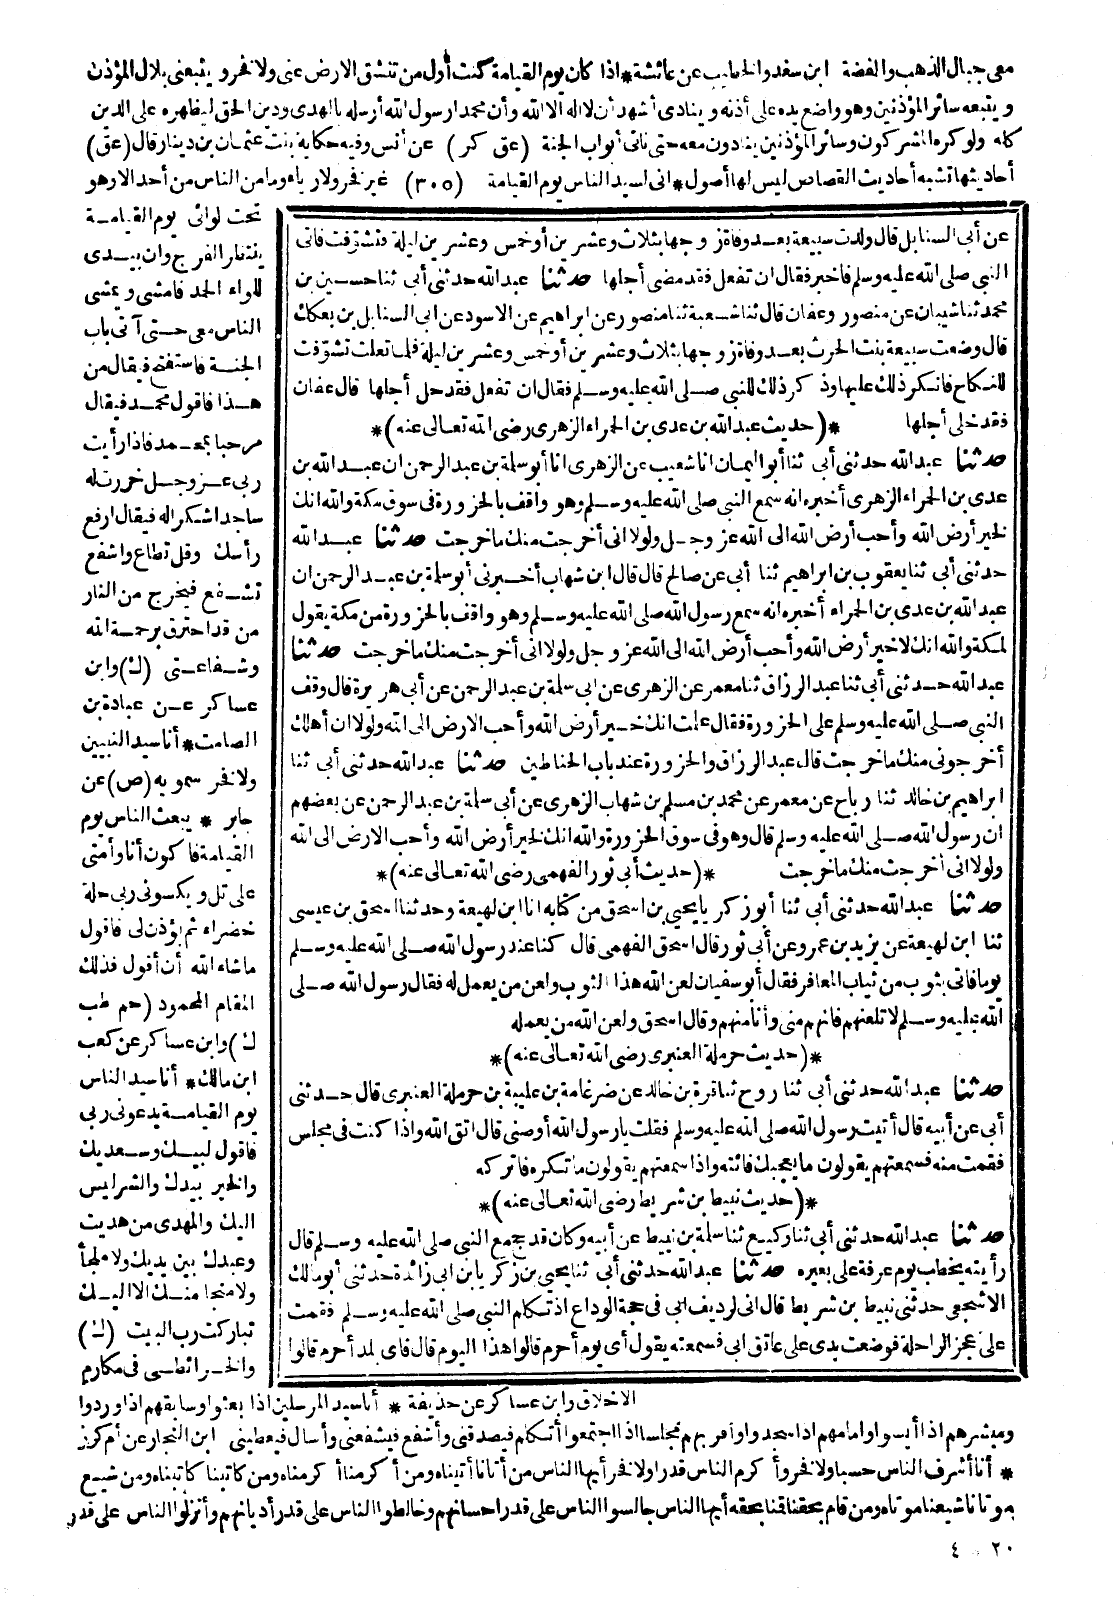 معى جبال الذهب والفضة ابن سعد والخطيب عن عائشة * اذا كان يوم القيامة كنت أول من تنشق الارض عنى ولا فخر ويتبعنى بلال المؤذن
ويتبعه سائر المؤذنين وهو واضع يده على أذنه وينادى أشهد أن لا اله الا الله وأن محمدا رسول الله أرسله بالهدى ودين الحق ليظهره على الدين
كله ولو كره المشركون وسائر المؤذنين ينادون معه حتى نأتى أبواب الجنة (عق كر) عن أنس وفيه حكاية بنت عثمان بن دينار قال (عق)
أحاديثها تشبه أحاديث القصاص ليس لها أصول * انى لسيد الناس يوم القيامة (٣٠٥) غير فخر ولا رياء وما من الناس من أحد الا وهو
تحت لوائى يوم القيامة
ينتظر الفرج وان بيدى
للواء الحمد فامشى ويمشى
الناس معى حتى آتى باب
الجنة فاستفتح فيقال من
هذا فاقول محمد فيقال
مرحبا بمحمد فاذا رأيت
ربى عز وجل خررت له
ساجدا شكرا له فيقال ارفع
رأسك وقل تطاع واشفع
تشفع فيخرج من النار
من قد احترق برحمة الله
وشفاعتى (ك) وابن
عساكر عن عبادة بن
الصامت * أنا سيد النبيين
ولا فخر سمويه (ص) عن
جابر * يبعث الناس يوم
القيامة فاكون أنا وأمتى
على تل ويكسونى ربى حلة
خضراء ثم يؤذن لى فاقول
ما شاء الله أن أقول فذلك
المقام المحمود (حم طب
ك) وابن عساكر عن كعب
ابن مالك * أنا سيد الناس
يوم القيامة يدعونى ربى
فاقول لبيك وسعديك
والخير بيدك والشر ليس
اليك والمهدى من هديت
وعبدك بين يديك ولا ملجأ
ولا منجا منك الا اليك
تباركت رب البيت (ك)
والخرائطى فى مكارم
عن أبى السنابل قال ولدت سبيعة بعد وفاة زوجها بثلاث وعشرين أو خمس وعشرين ليلة فتشوفت فاتى
النبى صلى الله عليه وسلم فاخبر فقال ان تفعل فقد مضى أجلها حدثنا عبد الله حدثنى أبى ثنا حسين بن
محمد ثنا شيبان عن منصور وعفان قال ثنا شعبة ثنا منصور عن ابراهيم عن الاسود عن ابى السنابل بن بعكك
قال وضعت سبيعة بنت الحرث بعد وفاة زوجها بثلاث وعشرين أو خمس وعشرين ليلة فلما تعلت تشوفت
للنكاح فانكر ذلك عليها وذكر ذلك للنبى صلى الله عليه وسلم فقال ان تفعل فقد حل أجلها قال عفان
فقد خلى أجلها *(حديث عبد الله بن عدى بن الحمراء الزهرى رضى الله تعالى عنه)*
حدثنا عبد الله حدثنى أبى ثنا أبو اليمان انا شعيب عن الزهرى انا أبو سلمة بن عبد الرحمن ان عبد الله بن
عدى بن الحمراء الزهرى أخبره انه سمع النبى صلى الله عليه وسلم وهو واقف بالحزورة فى سوق مكة والله انك
لخير أرض الله وأحب أرض الله الى الله عز وجل ولولا انى أخرجت منك ما خرجت حدثنا عبد الله
حدثنى أبى ثنا يعقوب بن ابراهيم ثنا أبى عن صالح قال قال ابن شهاب أخبرنى أبو سلمة بن عبد الرحمن ان
عبد الله بن عدى بن الحمراء أخبره انه سمع رسول الله صلى الله عليه وسلم وهو واقف بالحزورة من مكة يقول
لمكة والله انك لاخير أرض الله وأحب أرض الله الى الله عز وجل ولولا انى أخرجت منك ما خرجت حدثنا
عبد الله حدثنى أبى ثنا عبد الرزاق ثنا معمر عن الزهرى عن ابى سلمة بن عبد الرحمن عن أبى هريرة قال وقف
النبى صلى الله عليه وسلم على الحزورة فقال علمت انك خير أرض الله وأحب الارض الى الله ولولا ان أهلك
أخرجونى منك ما خرجت قال عبد الرزاق والحزورة عند باب الحناطين حدثنا عبد الله حدثنى أبى ثنا
ابراهيم بن خالد ثنا رباح عن معمر عن محمد بن مسلم بن شهاب الزهرى عن أبى سلمة بن عبد الرحمن عن بعضهم
ان رسول الله صلى الله عليه وسلم قال وهو فى سوق الحزورة والله انك لخير أرض الله وأحب الارض الى الله
ولولا انى أخرجت منك ما خرجت *(حديث أبى ثور الفهمى رضى الله تعالى عنه)*
حدثنا عبد الله حدثنى أبى ثنا أبو زكريا يحيى بن اسحق من كتابه انا ابن لهيعة وحدثنا اسحق بن عيسى
ثنا ابن لهيعة عن يزيد بن عمرو عن أبى ثور قال اسحق الفهمى قال كنا عند رسول الله صلى الله عليه وسلم
يوما فاتى بثوب من ثياب المعافر فقال أبو سفيان لعن الله هذا الثوب ولعن من يعمل له فقال رسول الله صلى
الله عليه وسلم لا تلعنهم فانهم منى وأنا منهم وقال اسحق ولعن الله من يعمله
*(حديث حرملة العنبرى رضى الله تعالى عنه)*
حدثنا عبد الله حدثنى أبى ثنا روح ثنا قرة بن خالد عن ضرغامة بن عليبة بن حرملة العنبرى قال حدثنى
أبى عن أبيه قال أتيت رسول الله صلى الله عليه وسلم فقلت يا رسول الله أوصنى قال اتق الله واذا كنت فى مجلس
فقمت منه فسمعتهم يقولون ما يعجبك فائته واذا سمعتهم يقولون ما تكره فاتركه
*(حديث نبيط بن شريط رضى الله تعالى عنه)*
حدثنا عبد الله حدثنى أبى ثنا وكيع ثنا سلمة بن نبيط عن أبيه وكان قد حج مع النبى صلى الله عليه وسلم قال
رأيته يخطب يوم عرفة على بعيره حدثنا عبد الله حدثنى أبى ثنا يحيى بن زكريا بن ابى زائدة حدثنى أبو مالك
الاشجعى حدثنى نبيط بن شريط قال انى لرديف ابى فى حجة الوداع اذ تكلم النبى صلى الله عليه وسلم فقمت
على عجز الراحلة فوضعت يدى على عاتق ابى فسمعته يقول أى يوم أحرم قالوا هذا اليوم قال فاى بلد أحرم قالوا
الاخلاق وابن عساكر عن حذيفة * أنا سيد المرسلين اذا بعثوا وسابقهم اذا وردوا
ومبشرهم اذا أيسوا وامامهم اذا سجدوا وأقربهم مجلسا اذا اجتمعوا أتكلم فيصدقنى وأشفع فيشفعنى وأسال فيعطينى ابن النجار عن أم كرز
* أنا أشرف الناس حسبا ولا فخر وأكرم الناس قدرا ولا فخر أيها الناس من أتانا أتيناه ومن أكرمنا أكرمناه ومن كاتبنا كاتبناه ومن شيع
موتانا شيعنا موتاه ومن قام بحقنا قمنا بحقه أيها الناس جالسوا الناس على قدر احسانهم وخالطوا الناس على قدر أديانهم وأنزلوا الناس على قدر
٢٠ ٤